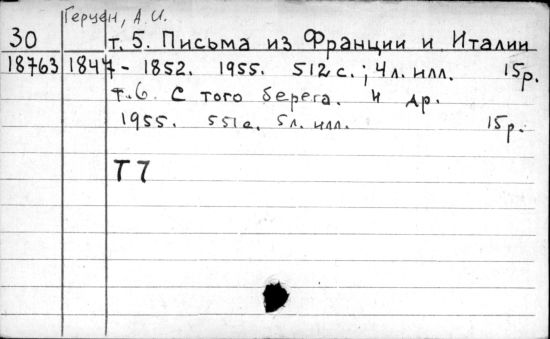 Герцен, А.И.
30 т. 5. Письма из Франции и Италии
18763 1847 - 1852. 1955. 512 с.; 4 л. илл. 15 р.
т. 6. С того берега. и др.
1955. 551 с. 5 л. илл. 15 р.
Т 7